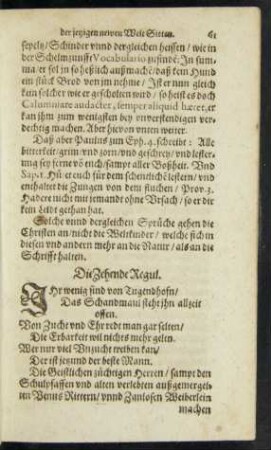 der jetzigen newen Welt Sitten. 61
fepelz / Schinder vnnd dergleichen heissen / wie in
der Schelmzunfft Vocabulario zufinde: In sum-
ma / er sol jn so heßlich außmache / daß kein Hund
ein stück Brod von jm nehme / Ist er nun gleich
kein solcher wie er gescholten wird / so heist es doch
Calumniare audacter, semper aliquid hæret, er
kan jhm zum wenigsten bey vnverstendigen ver-
dechtig machen. Aber hievon vnten weiter.
Daß aber Paulus zum Eph. 4. schreibt: Alle
bitterkeit / grim / vnd zorn / vnd geschrey / vnd lester-
ung sey ferne vō euch sampt aller Boßheit. Vnd
Sap. 1. Hüt euch für dem schentliche lestern / vnd
enthaltet die Zungen von dem fluchen / Prov. 3.
Hadere nicht mit jemande ohne Vrsach / so er dir
kein leidt gethan hat.
Solche vnnd dergleichen Sprüche gehen die
Christen an / nicht die Weltkinder / welche sich in
diesen vnd andern mehr an die Natur / als an die
Schrifft halten.
Die Zehende Regul.
IHr wenig sind von Tugendhofn /
Das Schandmaul steht jhn allzeit
offen.
Von Zucht vnd Ehr redt man gar selten /
Die Erbarkeit wil nichts mehr gelten.
Wer nur viel Vnzucht treiben kan /
Der ist jezund der beste Mann.
Die Geistlichen züchtigen Herren / sampt den
Schulpfaffen vnd alten verlebten außgemergel-
ten Venus Rittern / vnnd Zanlosen Weiberlein
machen